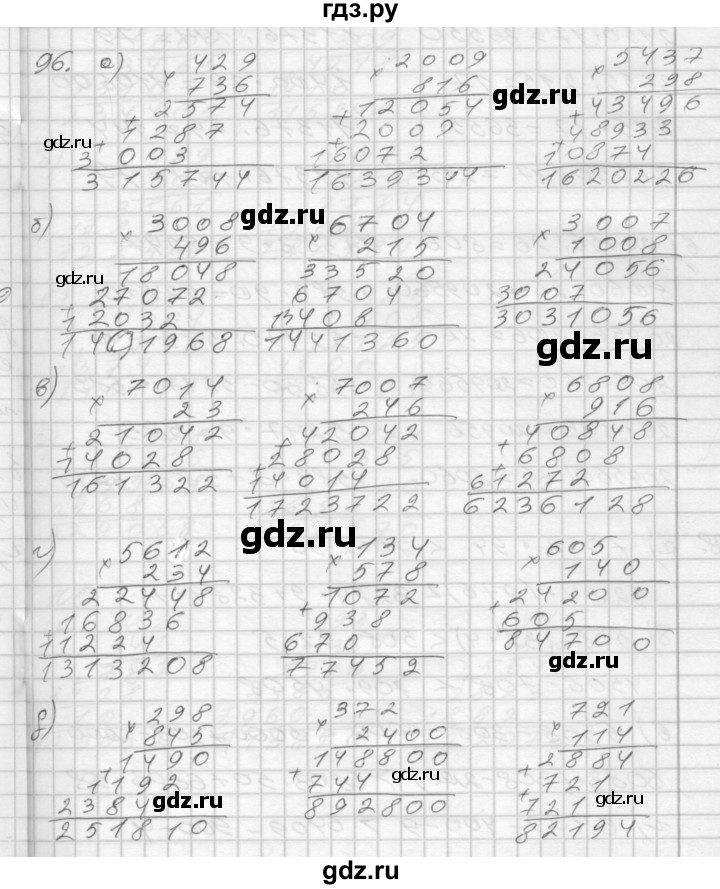 гдз.ру
96. а) 429 2009 5437
× 736 × 816 × 298
2574 12054 43496
+ 1287 + 2009 + 48933
3003 16072 10874
315744 1639344 1620226
б) 3008 6704 3007
× 496 × 215 × 1008
18048 33520 24056
27072 6704 3007
12032 13408 3031056
1491968 1441360
в) 7014 7007 6808
× 23 × 246 × 916
21042 42042 40848
+ 14028 + 28028 + 6808
161322 14014 61272
1723722 6236128
г) 5612 134 605
× 234 × 578 × 140
22448 1072 24200
16836 + 938 + 605
11224 670 84700
1313208 77452
д) 298 372 721
× 845 × 2400 × 114
1490 148800 2884
1192 + 744 + 721
2384 892800 721
251810 82194
gdz.ru
gdz.ru
gdz.ru
gdz.ru
gdz.ru
gdz.ru
gdz.ru
gdz.ru
gdz.ru
gdz.ru
gdz.ru
gdz.ru
gdz.ru